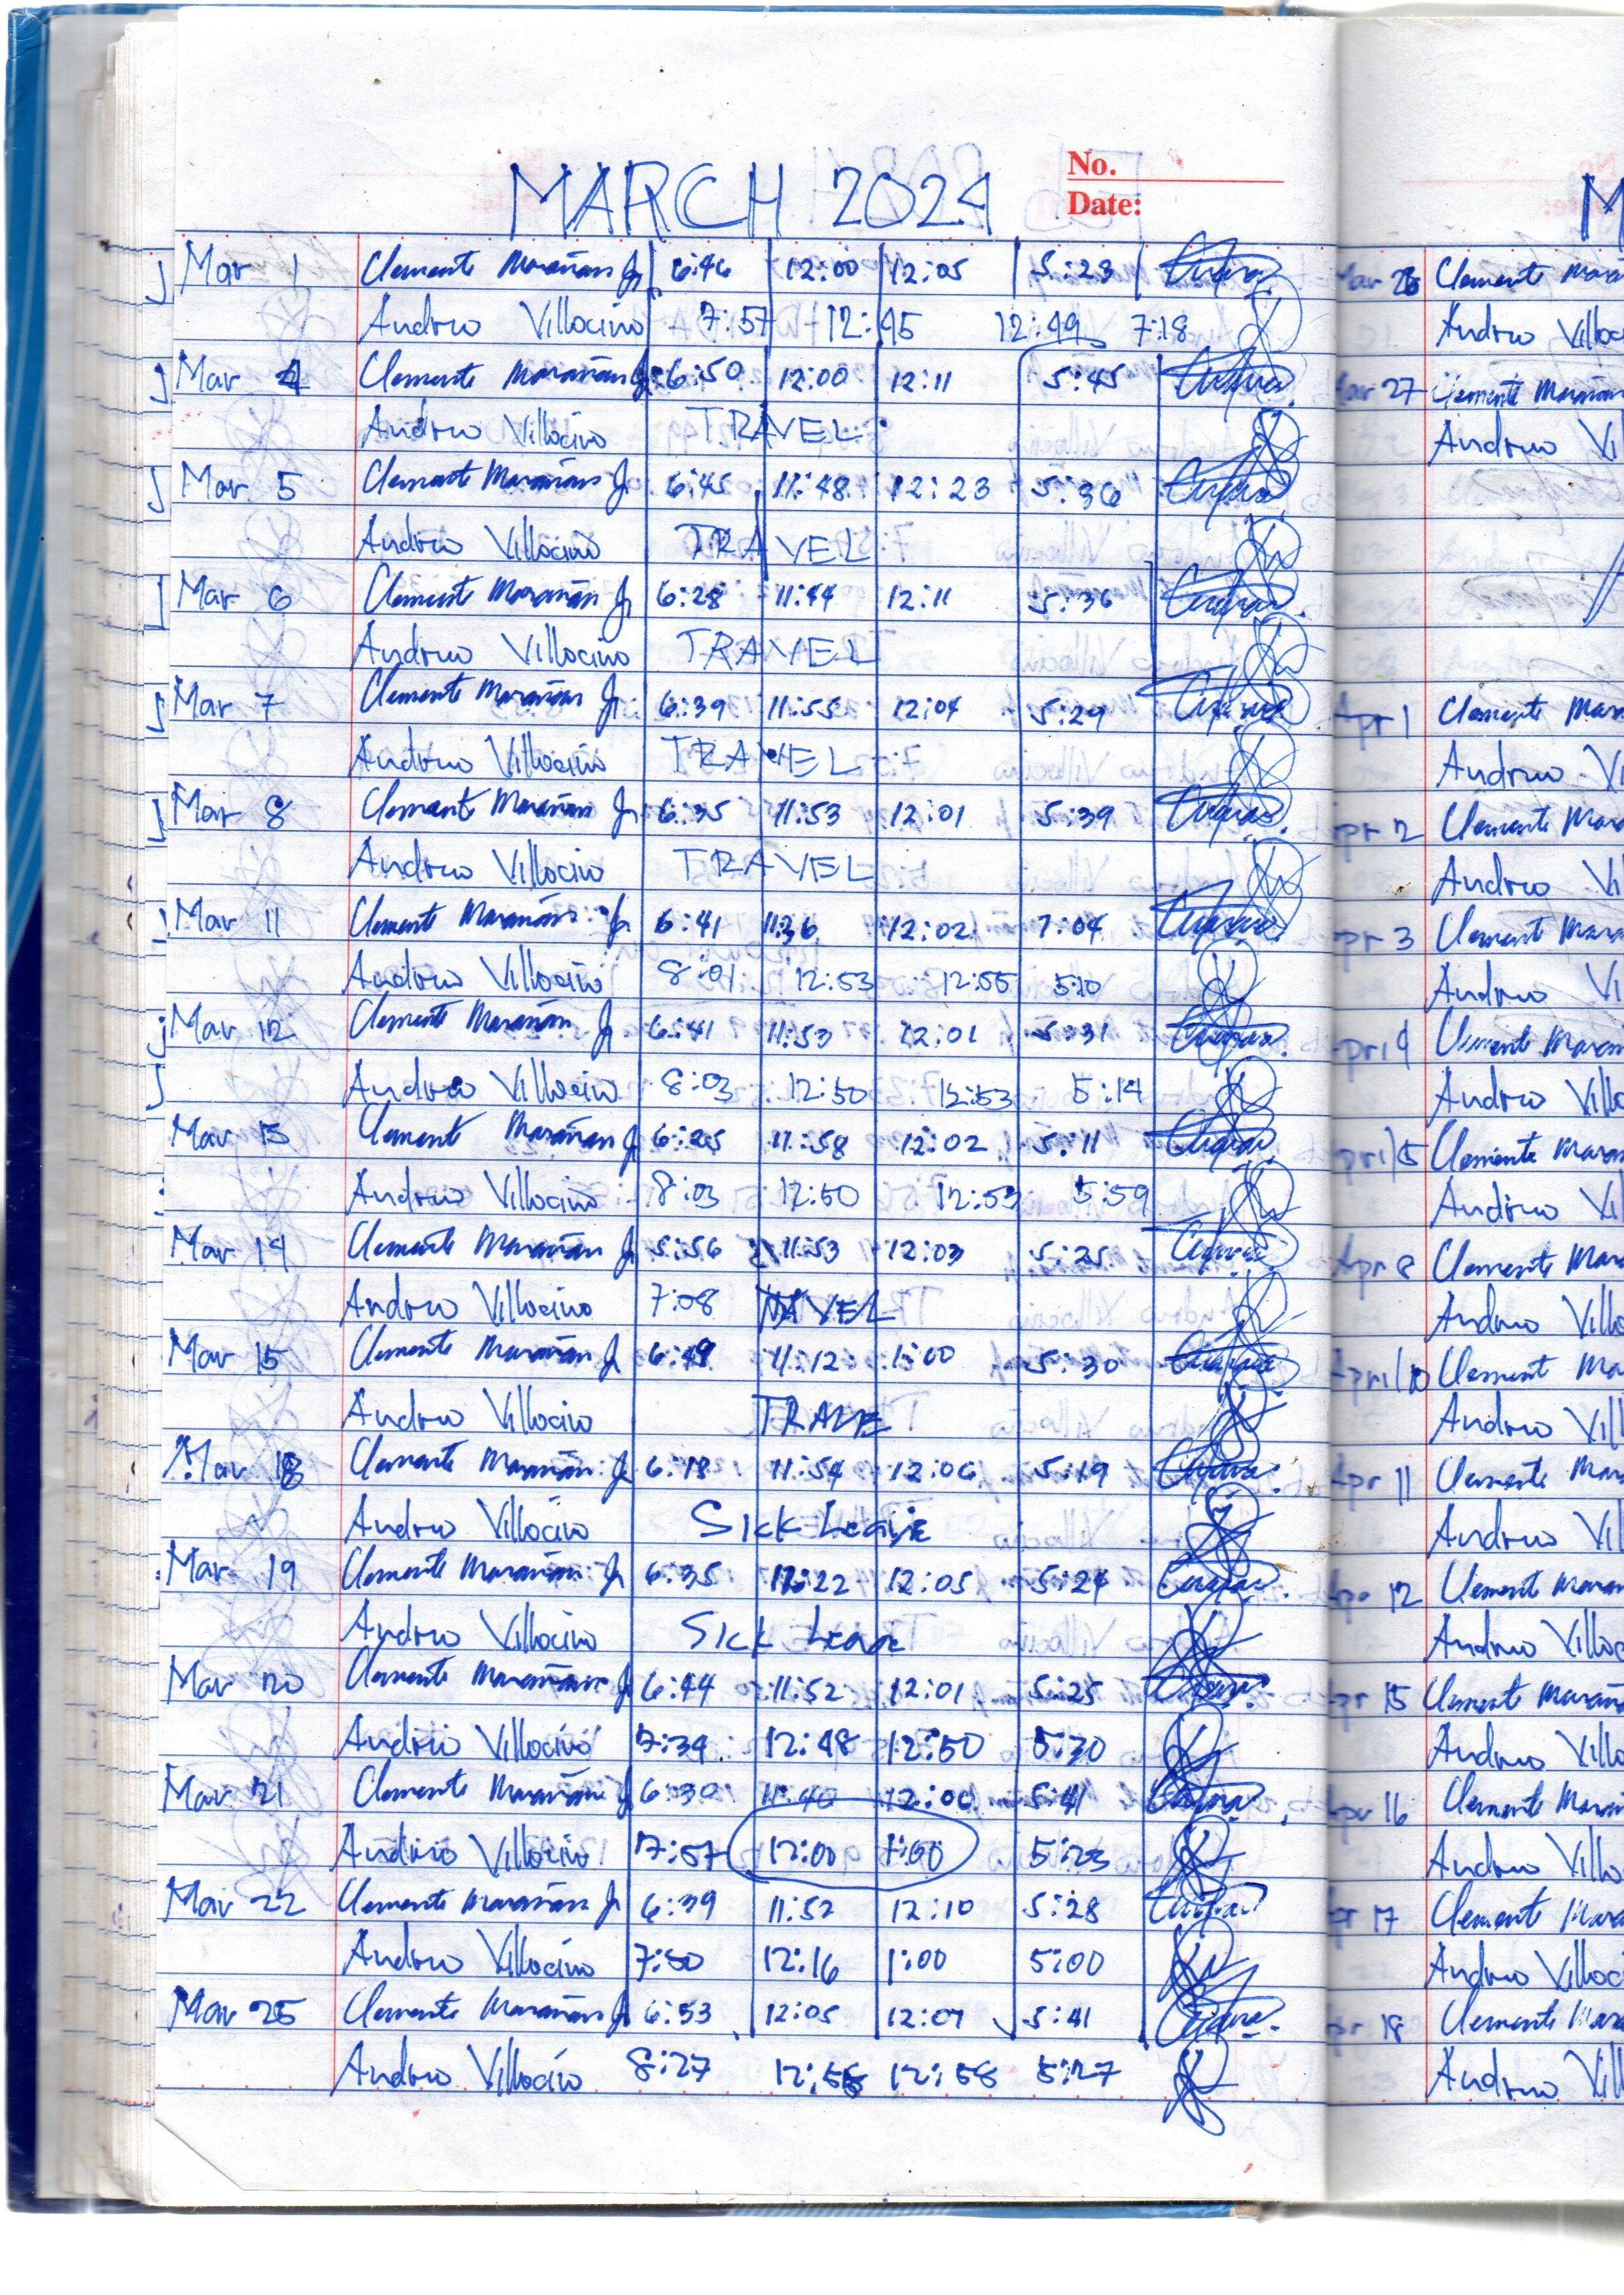 MARCH 2024
No.
Date:
Mar 1 Clemente Marañan Jr 6:46 12:00 12:05 5:23
Andrew Villocino 7:57 12:45 12:49 7:18
Mar 4 Clemente Marañan Jr 6:50 12:00 12:11 5:45
Andrew Villocino TRAVEL
Mar 5 Clemente Marañan Jr 6:45 11:48 12:23 5:36
Andrew Villocino TRAVEL
Mar 6 Clemente Marañan Jr 6:28 11:44 12:11 5:36
Andrew Villocino TRAVEL
Mar 7 Clemente Marañan Jr 6:39 11:55 12:04 5:29
Andrew Villocino TRAVEL
Mar 8 Clemente Marañan Jr 6:35 11:53 12:01 5:39
Andrew Villocino TRAVEL
Mar 11 Clemente Marañan Jr 6:41 11:36 12:02 7:04
Andrew Villocino 8:01 12:53 12:55 5:10
Mar 12 Clemente Marañan Jr 6:41 11:53 12:01 5:31
Andrew Villocino 8:03 12:50 12:53 5:14
Mar 13 Clemente Marañan Jr 6:25 11:58 12:02 5:11
Andrew Villocino 8:03 12:50 12:53 5:59
Mar 14 Clemente Marañan Jr 5:56 11:53 12:03 5:25
Andrew Villocino 7:08 TRAVEL
Mar 15 Clemente Marañan Jr 11:12 1:00 5:30
Andrew Villocino TRAVE
Mar 18 Clemente Marañan Jr 6:18 11:54 12:06 5:19
Andrew Villocino Sick Leave
Mar 19 Clemente Marañan Jr 6:35 12:05 5:24
Andrew Villocino Sick Leave
Mar 20 Clemente Marañan Jr 6:44 11:52 12:01 5:25
Andrew Villocino 7:34 12:48 12:50 5:30
Mar 21 Clemente Marañan Jr 6:30 11:40 12:06 5:41
Andrew Villocino 7:57 12:00 1:00 5:23
Mar 22 Clemente Marañan Jr 6:39 11:52 12:10 5:28
Andrew Villocino 7:50 12:16 1:00 5:00
Mar 25 Clemente Marañan Jr 6:53 12:05 12:07 5:41
Andrew Villocino 8:27 12:58 5:27
M
Mar 26 Clemente Mara
Andrew Villoc
Mar 27 Clemente Marañan
Andrew Vi
Apr 1 Clemente Mar
Andrew Vi
pr 2 Clemente Mara
Andrew Vi
pr 3 Clemente Mara
Andrew Vi
pril 4 Clemente Maran
Andrew Villo
pril 5 Clemente Mara
Andrew Vil
Apr 8 Clemente Mara
Andrew Villo
April 10 Clemente Ma
Andrew Vill
Apr 11 Clemente Mar
Andrew Vil
Apr 12 Clemente Maran
Andrew Villoc
pr 15 Clemente Marañ
Andrew Villo
Apr 16 Clemente Mara
Andrew Villo
pr 17 Clemente Mara
Andrew Villoc
pr 18 Clemente Mara
Andrew Vill